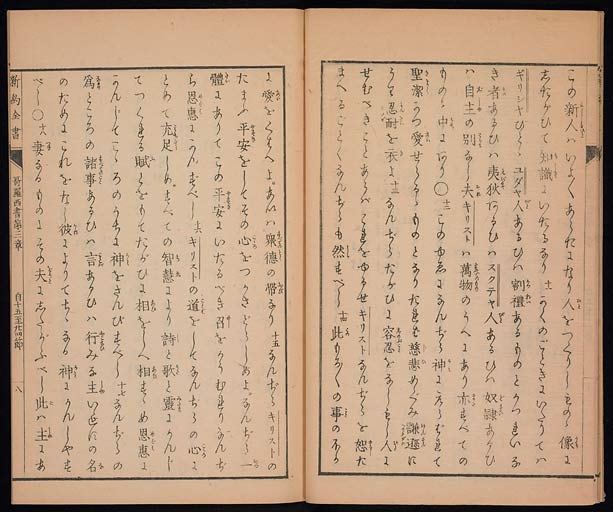 この新人ハいよ〱あらたになり人をつくりしものゝ像に
したがひて知識にいたるなり 十一 かくのごときにいたりてハ
ギリシヤびと ユダヤ人あるひハ割禮あるものとかつれいな
き者あるひハ夷狄あるひハスクテヤ人あるひハ奴隷あるひ
ハ自主の別なし夫キリストハ萬物のうへにあり亦すべての
ものゝ中にあり〇十二 このゆゑになんぢら神にえらばれて
聖潔かつ愛せらるゝものとなりたれば慈悲めぐみ謙遜に
忍耐を衣よ十三 なんぢらたがひに容忍をなしもし人に
せむべきことあらばこれをゆるせキリストなんぢらを恕た
まへるごとくなんぢらも然すべし十四 此もろ〱の事のほか
に愛をくはへよあいハ衆德の帶なり十五 なんぢらキリストの
たまふ平安をしてその心をつかさどらしめよなんぢら一
體にありてこの平安にいたるべき召をかうむれりなんぢ
ら恩惠にかんずべし十六 キリストの道をしてなんぢらの心に
とめて充足しめすべての智慧により詩と歌と靈にかんじ
てつくれる賦とをもてたがひに相をしへ相すゝめ恩惠に
かんじてこゝろのうちに神をさんびすべし十七 なんぢらの
爲ところの諸事あるひハ言あるひハ行みな主いえすの名
のためにこれをなし彼によりてちゝなる神にかんしやす
べし〇十八 妻なるものよその夫にしたがふべし此ハ主にあ
新約全書 哥羅西書第三章 自十五至廿四節 八